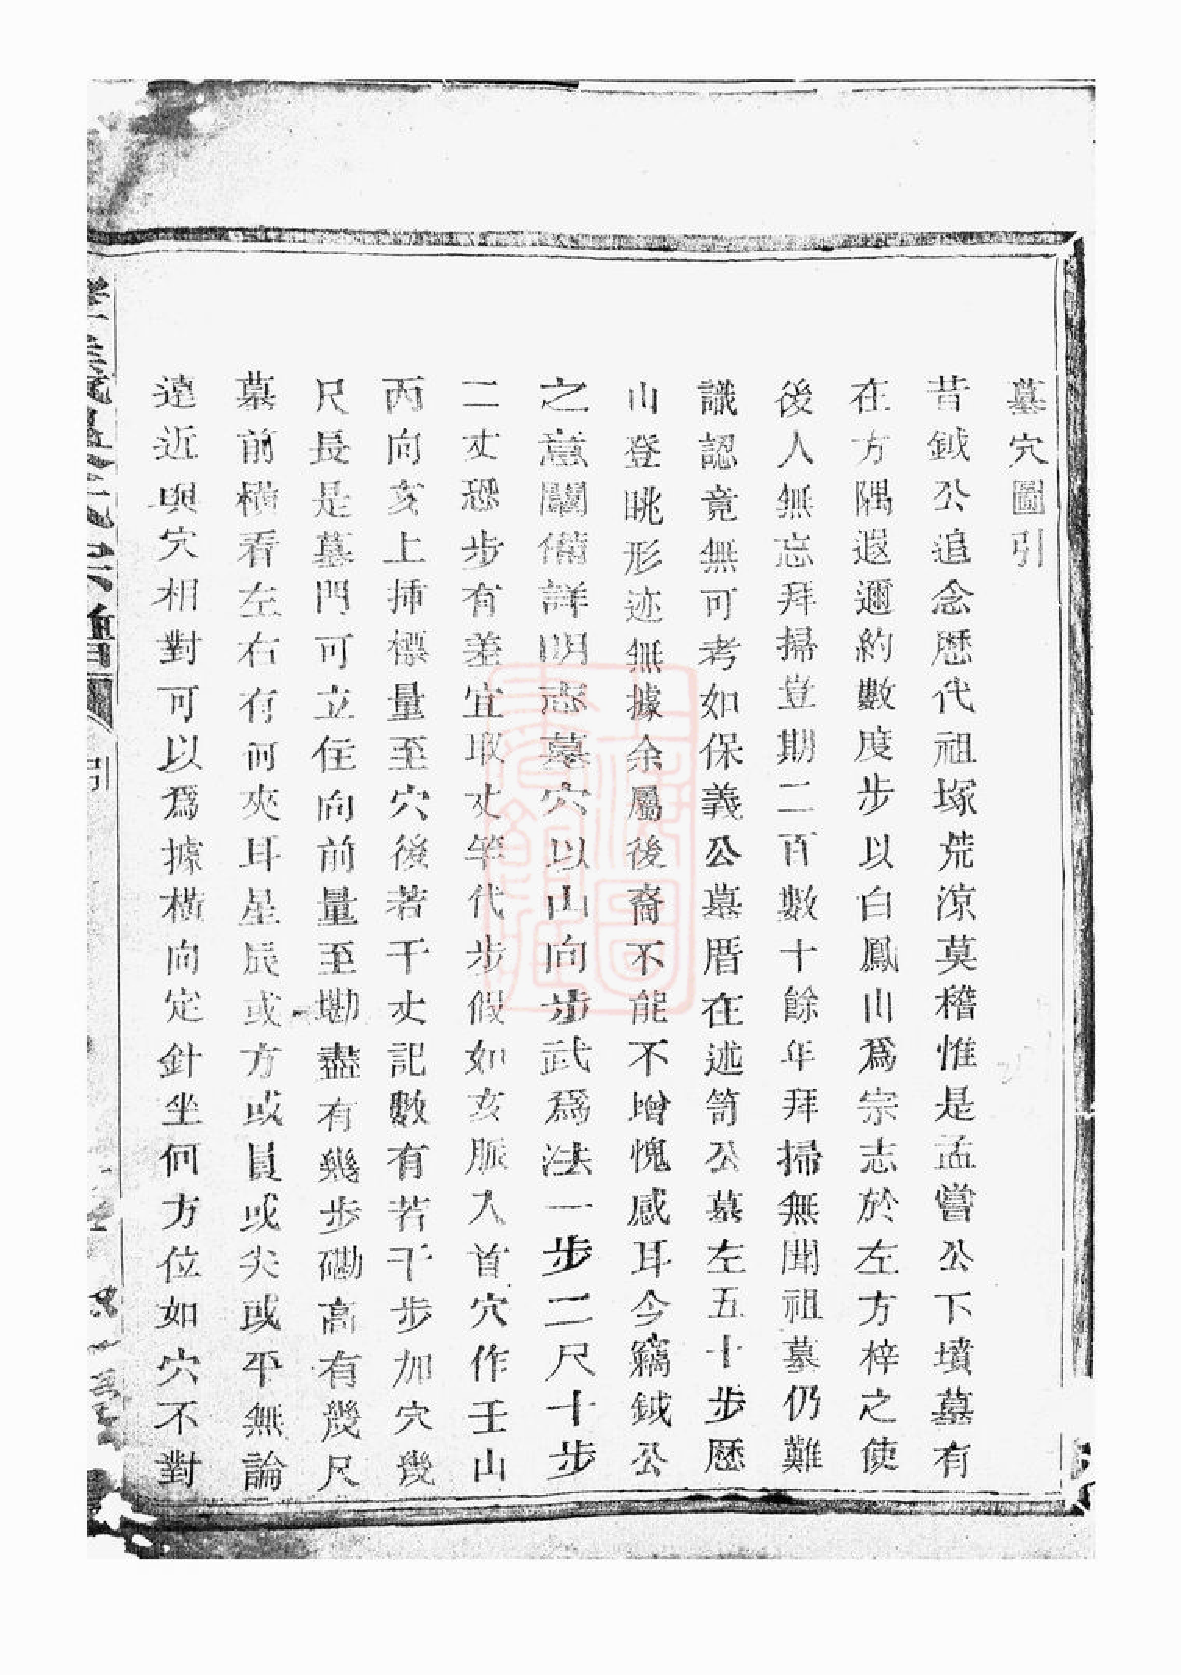 墓穴圖引
昔鉞公追念歷代祖塚荒涼莫稽惟是孟嘗公下墳墓有
在方隅遐邇約數度步以白鳳山爲宗志於左方梓之使
後人無忘拜掃豈期二百數十餘年拜掃無聞祖墓仍難
識認竟無可考如保義公墓厝在述笥公墓左五十步歷
山登眺形迹無據余屬後裔不能不增愧感耳今竊鉞公
之意闡備詳明志墓穴以山向步武爲法一步二尺十步
二丈恐步有差宜取丈竿代步假如亥脈入首穴作壬山
丙向亥上揷標量至穴後若干丈記數有若干步加穴幾
尺長是墓門可立住向前量至墈盡有幾步磡高有幾尺
墓前橫看左右有何夾耳星辰或方或員或尖或平無論
遠近與穴相對可以爲據橫向定針坐何方位如穴不對
宗譜
引